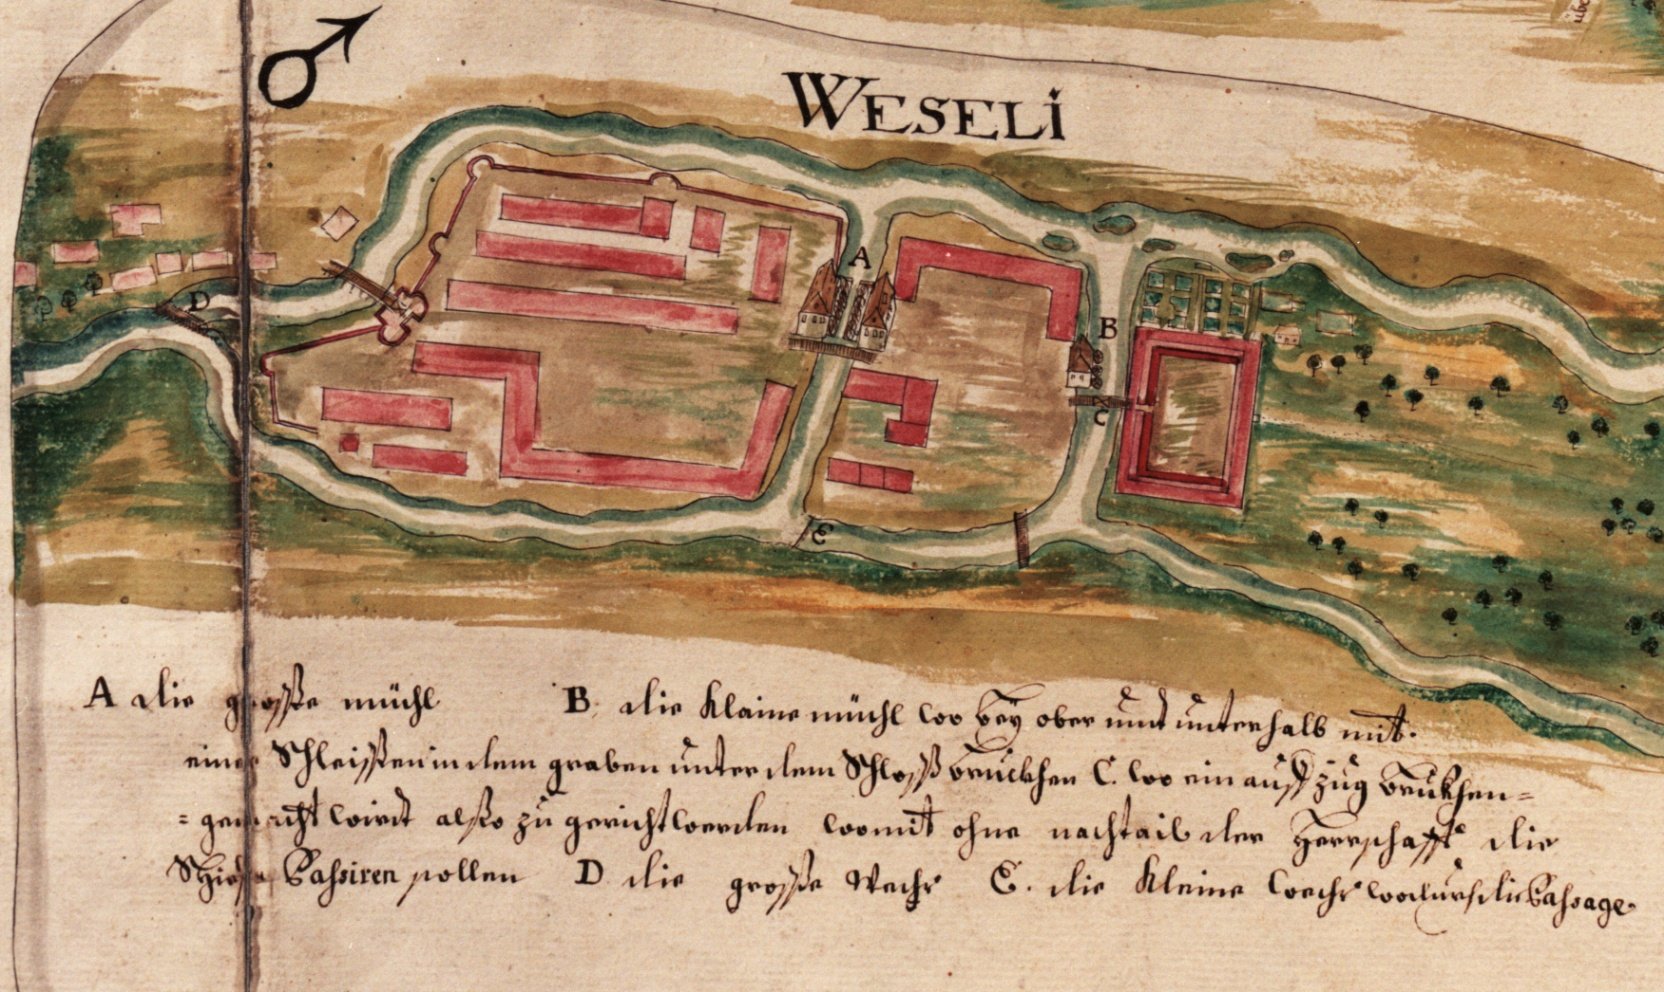 übe
WESELI
A
B
D
C
E
A die große mühl B. die Klaine mühl wo bey ober undt unterhalb mit.
einer Schleißen in dem graben unter dem Schloß brückhen C. wo ein auß zug brükhen=
=gemacht wirdt alßo zu gericht werden womit ohne nachtail der Herrschafft die
Schiffe Passiren sollen D die große Wehr E. die Kleine wehr wodurch die Passage.